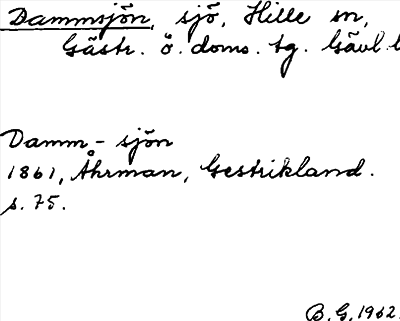 Dammsjön, sjö, Hille sn,
Gästr. ö. doms. tg. Gävl. l
Damm-sjön
1861, Åhrman, Gestrikland.
s. 75.
B. G. 1962.